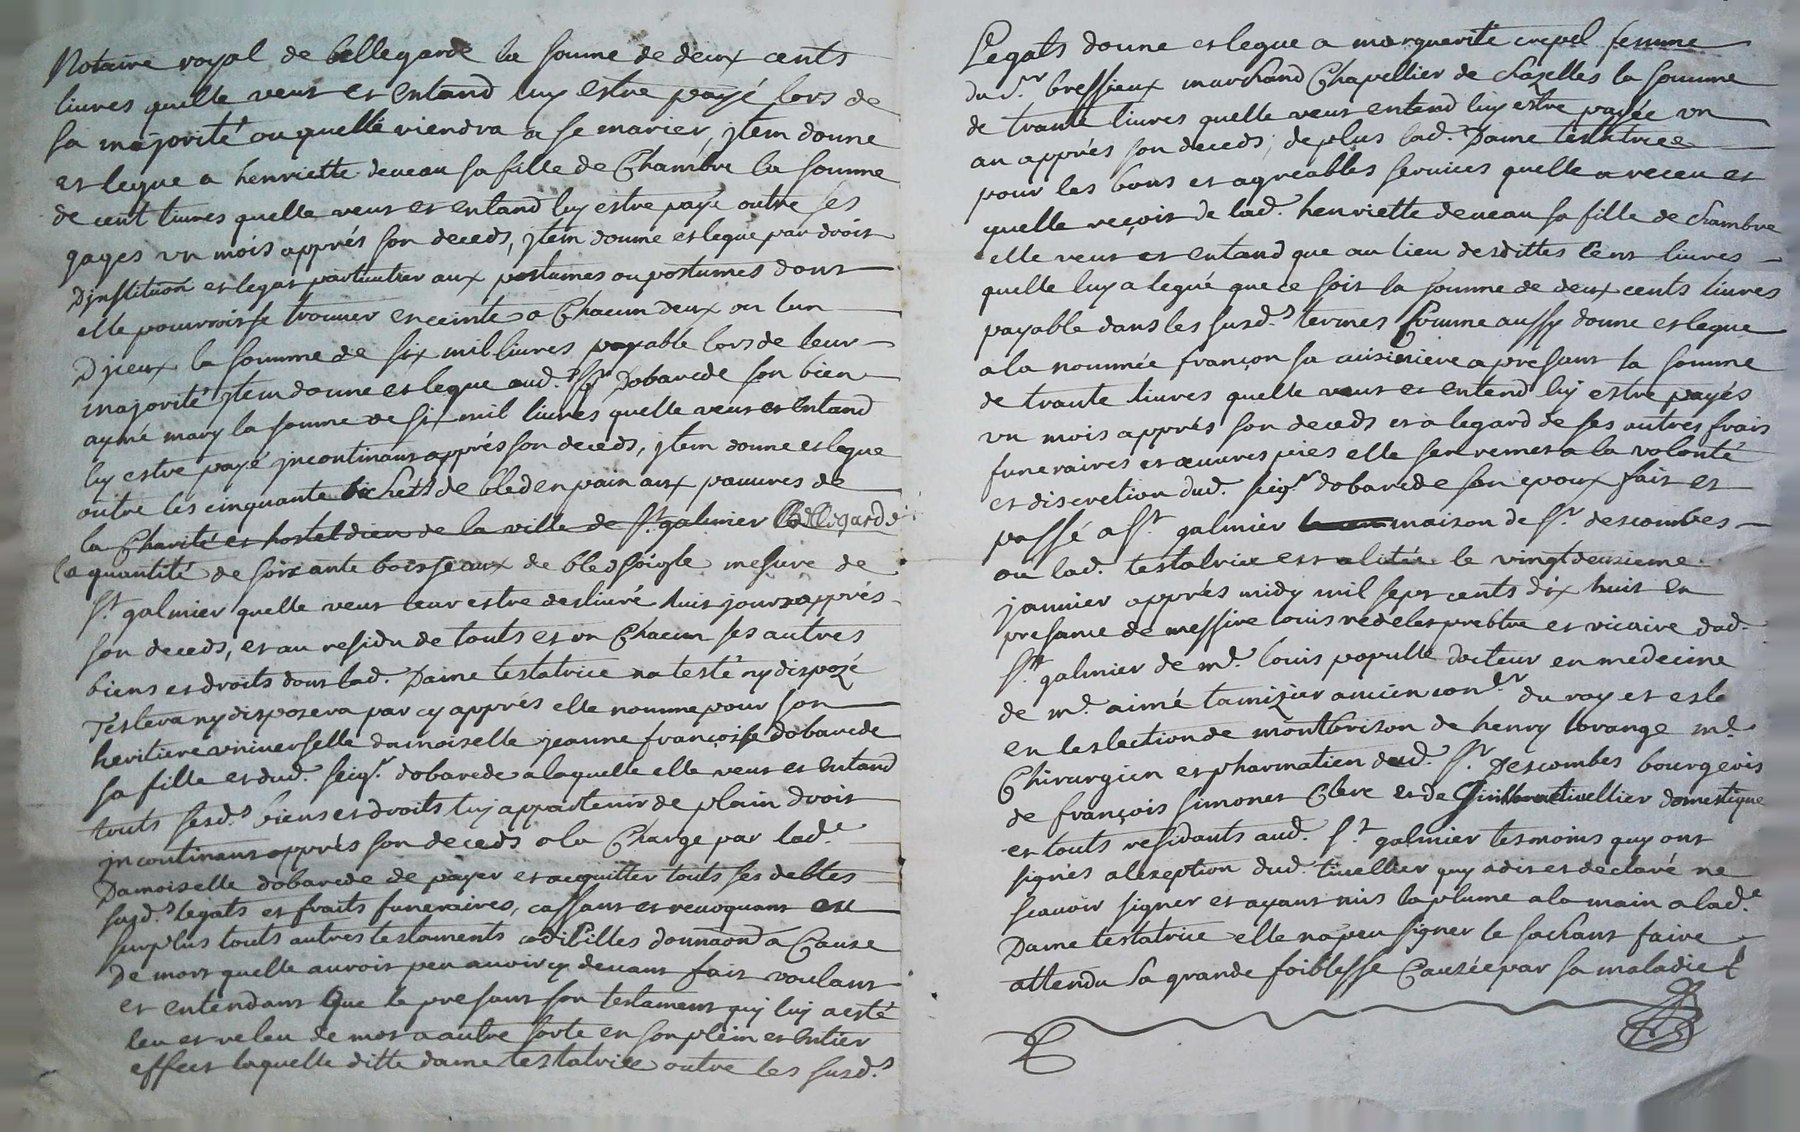 Notaire royal de bellegarde la somme de deux cents
livres quelle veut et entand luy estre payé lors de
sa majorité ou quelle viendra a se marier, jtem donne
et legue a henriette deveau sa fille de Chambre la somme
de cent livres quelle veut et entand luy estre payé outre ses
gages un mois apprés son deceds, jtem donne et legue par droit
Djnstitution et legat particulier aux postumes ou postumes dont
elle pourroit se trouver enceinte a Chacun deux ou lun
Djceux la somme de six mil livres payable lors de leur
majorité jtem donne et legue aud. Sgr Dobarede son bien
aymé mary la somme de six mil livres quelle veut et Entand
luy estre payé jncontinant apprés son deceds, jtem donne et legue
outre les cinquante bichets de bled en pain aux pauvres de
la Charité et hostel dieu de la ville de St. galmier Bellegarde
la quantité de soixante boisseaux de bled soigle mesure de
St. galmier quelle veut leur estre deslivré huit jours apprés
son deceds, et au residu de touts et un Chacun ses autres
biens et droits dont lad. Dame testatrice na testé ny disposé
Testera ny disposera par cy apprés elle nomme pour son
heritiere universelle damoiselle jeanne françoise dobarede
sa fille et dud. seigr. dobarede a laquelle elle veut et Entand
touts sesd.s biens et droits luy appartenir de plain droit
jncontinant apprés son deceds a la Charge par lad.e
Damoiselle dobarede de payer et acquitter touts ses debtes
susd.s legats et fraits funeraires, cassant et revoquant au
surplus touts autres testaments codicilles donnaõnd a Cause
De mort quelle auroit peu avoir cy devant fait voulant
et entendant que le present son testament quy luy a esté
leu et releu de mot a autre sorte en son plein et Entier
effect laquelle ditte dame testatrice outre les susd.s
Legats donne et legue a marguerite crepel femme
du Sr. bressieux marchand Chapellier de chazelles la somme
de trante livres quelle veut entend luy estre payée un
an apprés son deceds, de plus lad. Dame testatrice
pour les bons et agreables services quelle a receu et
quelle reçoit de lad. henriette deveau sa fille de chambre
elle veut et entand que au lieu desdittes cent livres
quelle luy a legué que ce soit la somme de deux cents livres
payable dans les susd.s termes Comme aussy donne et legue
a la nommée françon sa cuisiniere a presant la somme
de trante livres quelle veut et entend luy estre payés
un mois apprés son deceds et a legard de ses autres frais
funeraires et œuvres pies elle sen remet a la volonté
et discretion dud. seigr dobarede son epoux fait et
passé a St. galmier maison de Sr. descombes
ou lad. testatrice est alitée le vingt deuxieme
janvier apprés midy mil sept cents dix huit en
presance de messire louis prebtre et vicaire dud.
St. galmier de me. louis papulle docteur en medecine
de me. aimé tamizier ancien con.er du roy et esle
en leslection de montbrison de henry lorange me.
Chirurgien et pharmatien dud. Sr. Descombes bourgeois
de françois simonet Clerc et de tivellier domestique
et touts residants aud. St. galmier tesmoins quy ont
signés a lexeption dud. tivellier quy a dit et declaré ne
scavoir signer et ayant mis la plume a la main a lad.e
Dame testatrice elle na peu signer le sachant faire
attendu sa grande foiblesse Causée par sa maladie